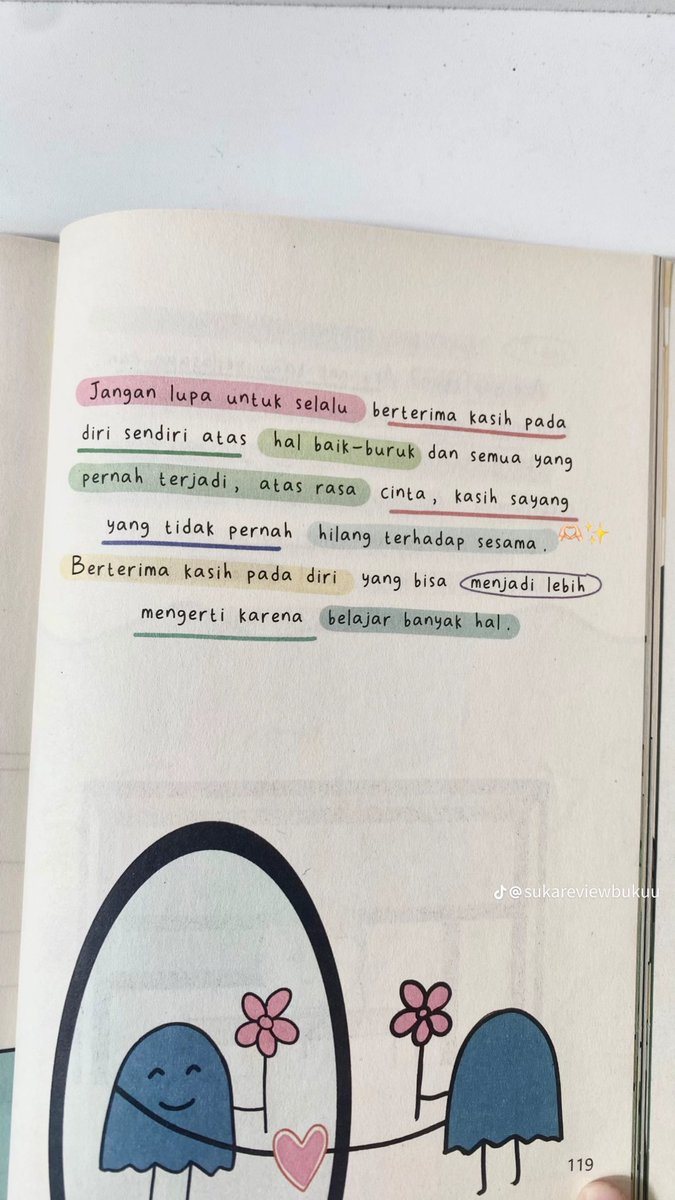 Jangan lupa untuk selalu berterima kasih pada
diri sendiri atas hal baik-buruk dan semua yang
pernah terjadi, atas rasa cinta, kasih sayang
yang tidak pernah hilang terhadap sesama. 🫶✨
Berterima kasih pada diri yang bisa menjadi lebih
mengerti karena belajar banyak hal.
@sukareviewbukuu
119